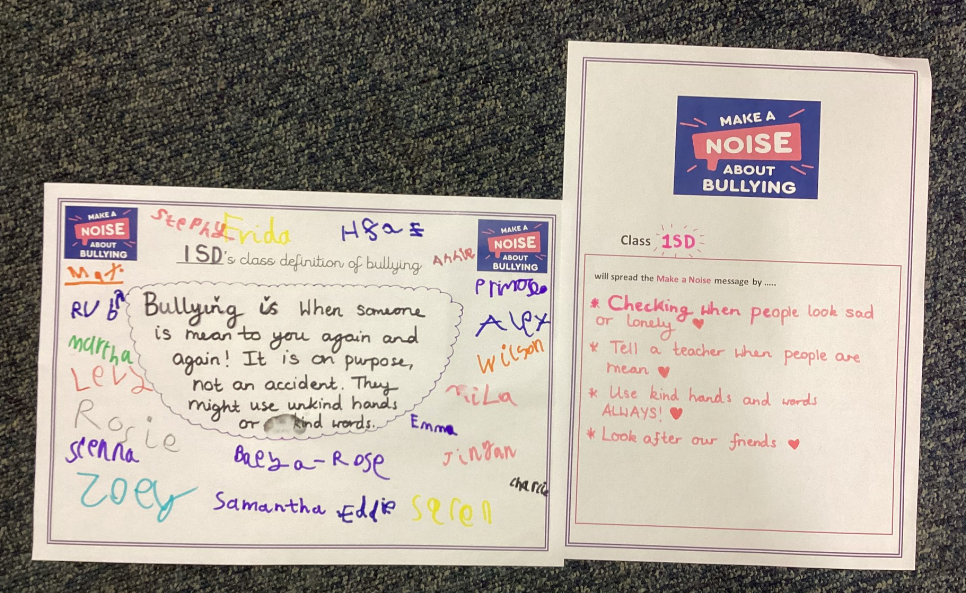 MAKE A
NOISE
ABOUT
BULLYING
Stephy Erida
MAKE A
NOISE
ABOUT
BULLYING
1SD's class definition of bullying
Annie
Mat
Primose
Ruby
Alex
Martha
Wilson
Levy
Mila
Rosie
Emma
Sienna
Baeya-Rose
Jingan
Zoey
Samantha Eddie Seren
Charlie
Bullying is when someone
is mean to you again and
again! It is on purpose,
not an accident. They
might use unkind hands
or kind words.
MAKE A
NOISE
ABOUT
BULLYING
Class 1SD
will spread the Make a Noise message by .....
* Checking when people look sad
or lonely ♥
* Tell a teacher when people are
mean ♥
* Use kind hands and words
ALWAYS! ♥
* Look after our friends ♥